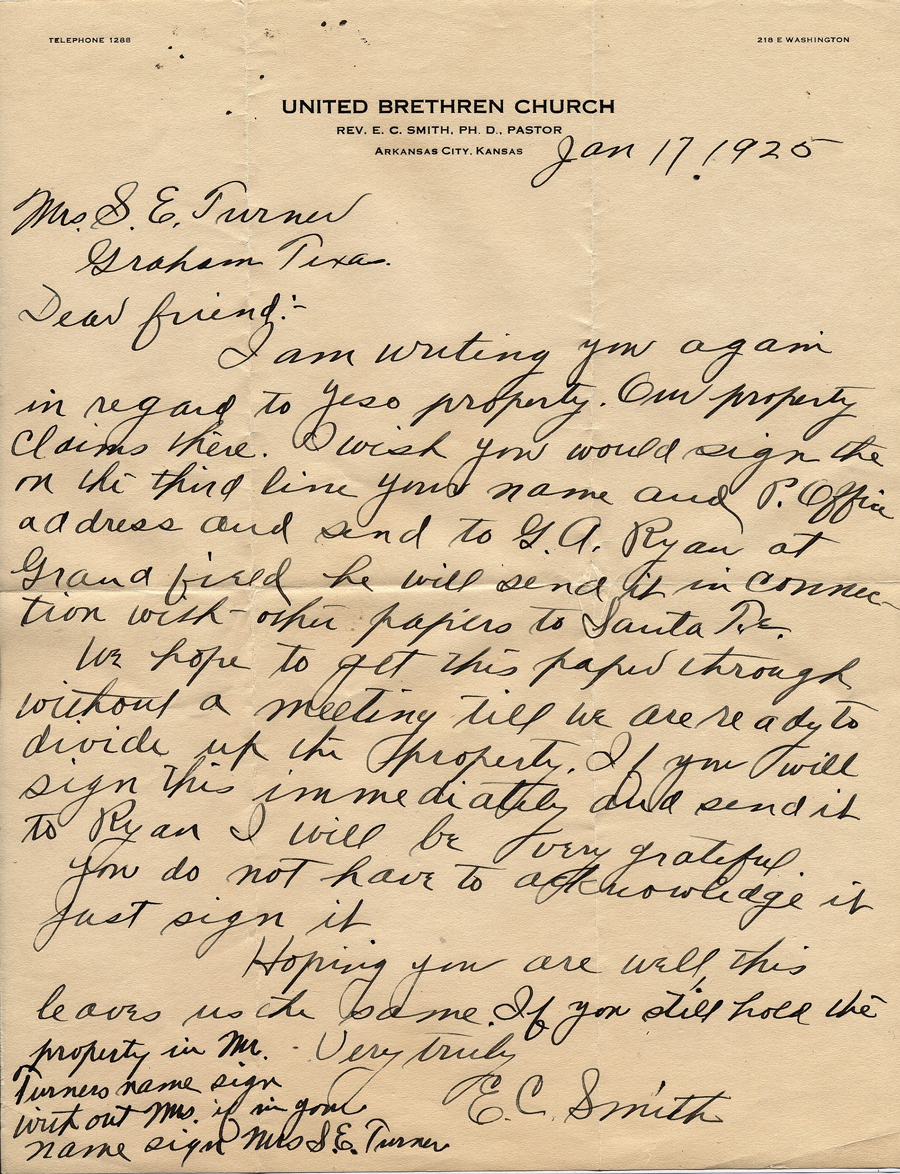 TELEPHONE 1288
218 E WASHINGTON
UNITED BRETHREN CHURCH
REV. E. C. SMITH, PH. D., PASTOR
ARKANSAS CITY, KANSAS
Jan 17, 1925
Mrs. S. E. Turner
Graham Texas.
Dear friend:-
I am writing you again
in regard to Yeso property. Our property
claims there. I wish you would sign the
on the third line your name and P. Office
address and send to G. A. Ryan at
Grand field he will send it in connec-
tion with other papers to Santa Fe.
We hope to get this paper through
without a meeting till we are ready to
divide up the property. If you will
sign this immediately and send it
to Ryan I will be very grateful
You do not have to acknowledge it
Just sign it
Hoping you are well, this
leaves us the same. If you still hold the
property in Mr.
Turners name sign
without Mrs. if in your
name sign Mrs S. E. Turner
Very truly
E. C. Smith